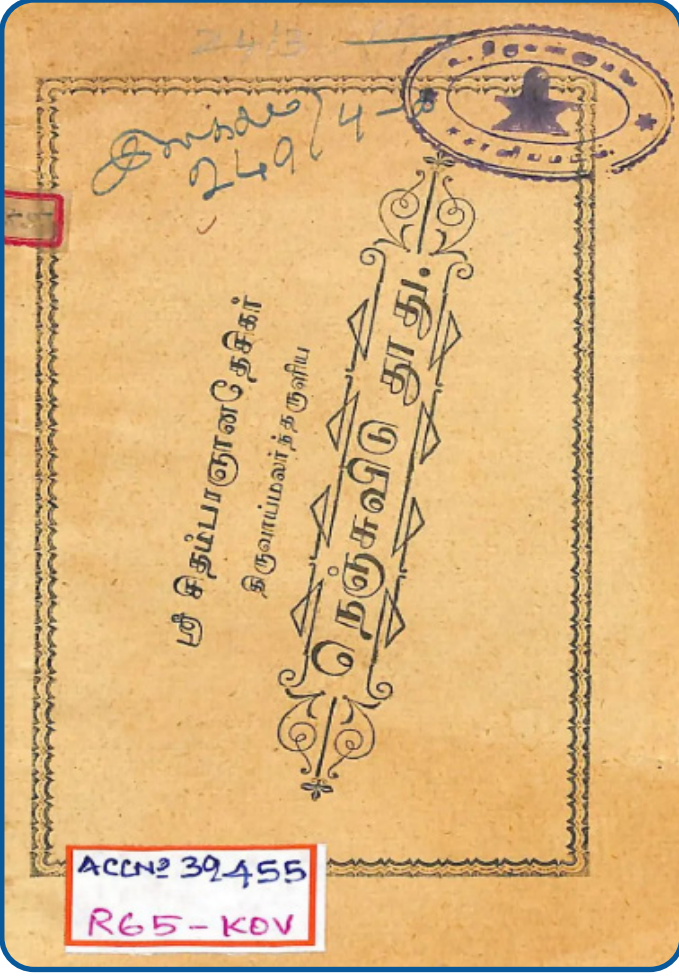 249/4-
ஸ்ரீ சிதம்பரஞானதேசிகர்
திருவாய்மலர்ந்தருளிய
நெஞ்சுவிடு தூது.
ACCNº 39455
R65-KOV